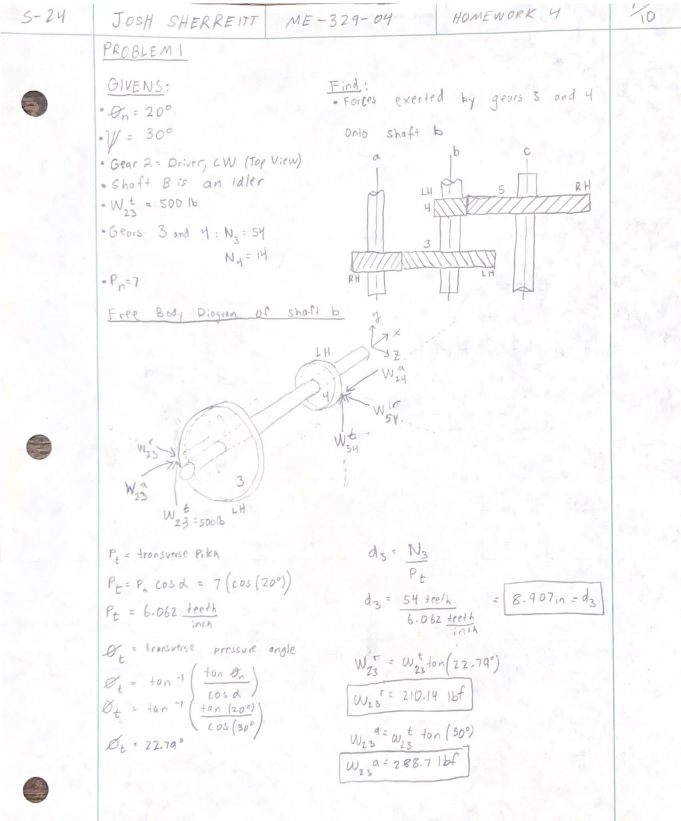 S-24 JOSH SHERREITT ME-329-04 HOMEWORK 4 1/10
PROBLEM 1
GIVENS:
• Øn = 20°
• Ψ = 30°
• Gear 2 = Driver, CW (Top View)
• Shaft B is an idler
• W₂₃ᵗ = 500 lb
• Gears 3 and 4: N₃ = 54
N₄ = 14
• Pn = 7
Find:
• Forces exerted by gears 3 and 4
onto shaft b
a b c
LH 5 RH
4
3
RH LH
Free Body Diagram of shaft b
y
x
z
LH
4
W₂₄ᵃ
W₅₄ʳ
W₅₄ᵗ
W₂₃ʳ
W₂₃ᵃ
3
LH
W₂₃ᵗ = 500lb
Pt = transverse Pitch
Pt = Pn cosα = 7 (cos(20°))
Pt = 6.062 teeth/inch
Øt = transverse pressure angle
Øt = tan⁻¹ (tan Øn / cosα)
Øt = tan⁻¹ (tan (20°) / cos (30°)
Øt = 22.79°
d₃ = N₃/Pt
d₃ = 54 teeth / 6.062 teeth/inch = 8.907in = d₃
W₂₃ʳ = W₂₃ᵗ tan(22.79°)
W₂₃ʳ = 210.14 lbf
W₂₃ᵃ = W₂₃ᵗ tan (30°)
W₂₃ᵃ = 288.7 lbf